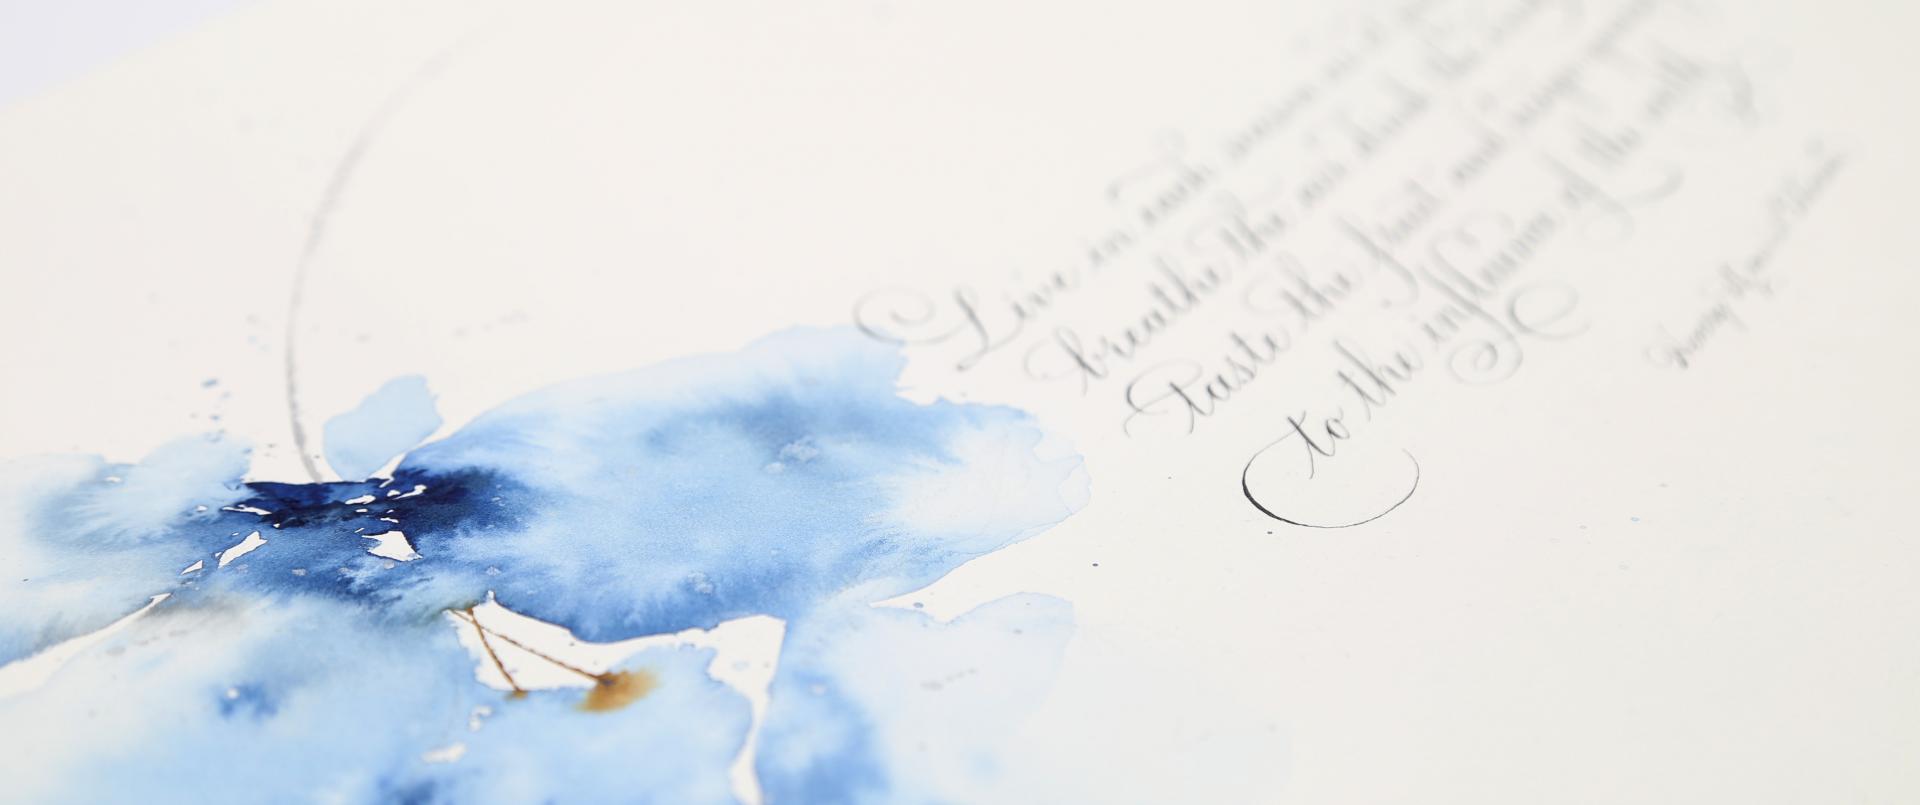 Live in each season as it
breathe the air drink the
taste the fruit and resign
to the influence of the earth
Henry David Thoreau